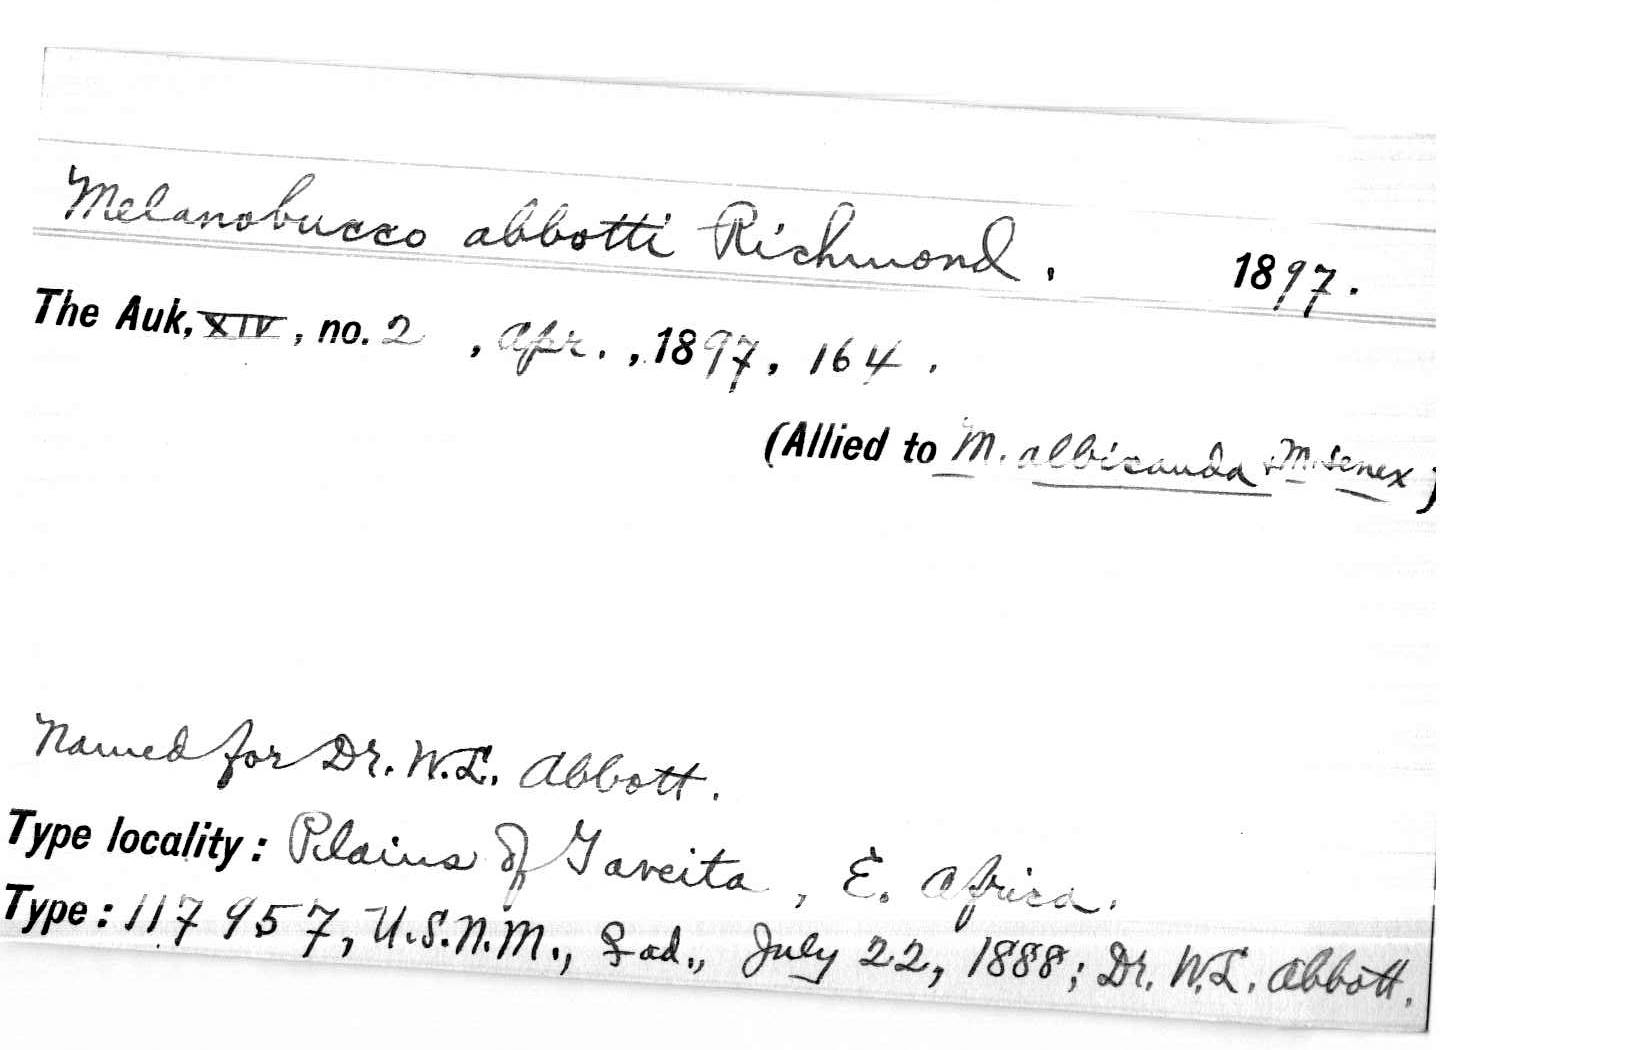 Melanobucco abbotti Richmond. 1897.
The Auk, XIV, no. 2, Apr., 1897, 164.
(Allied to M. albicauda & M. senex)
Named for Dr. W.L. Abbott.
Type locality: Plains of Taveita, E. Africa.
Type: 117957, U.S.N.M., ♀ ad., July 22, 1888; Dr. W.L. Abbott.